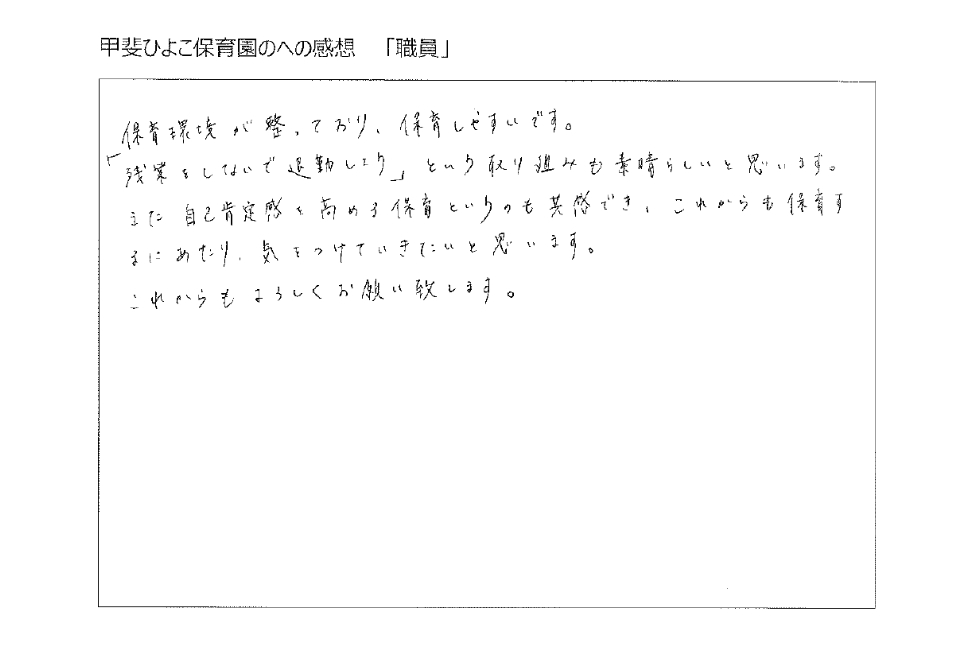 甲斐ひよこ保育園のへの感想 「職員」
保育環境が整っており、保育しやすいです。
「残業をしないで退勤しよう」という取り組みも素晴らしいと思います。
また自己肯定感を高める保育というのも共感でき、これからも保育す
るにあたり、気をつけていきたいと思います。
これからもよろしくお願い致します。